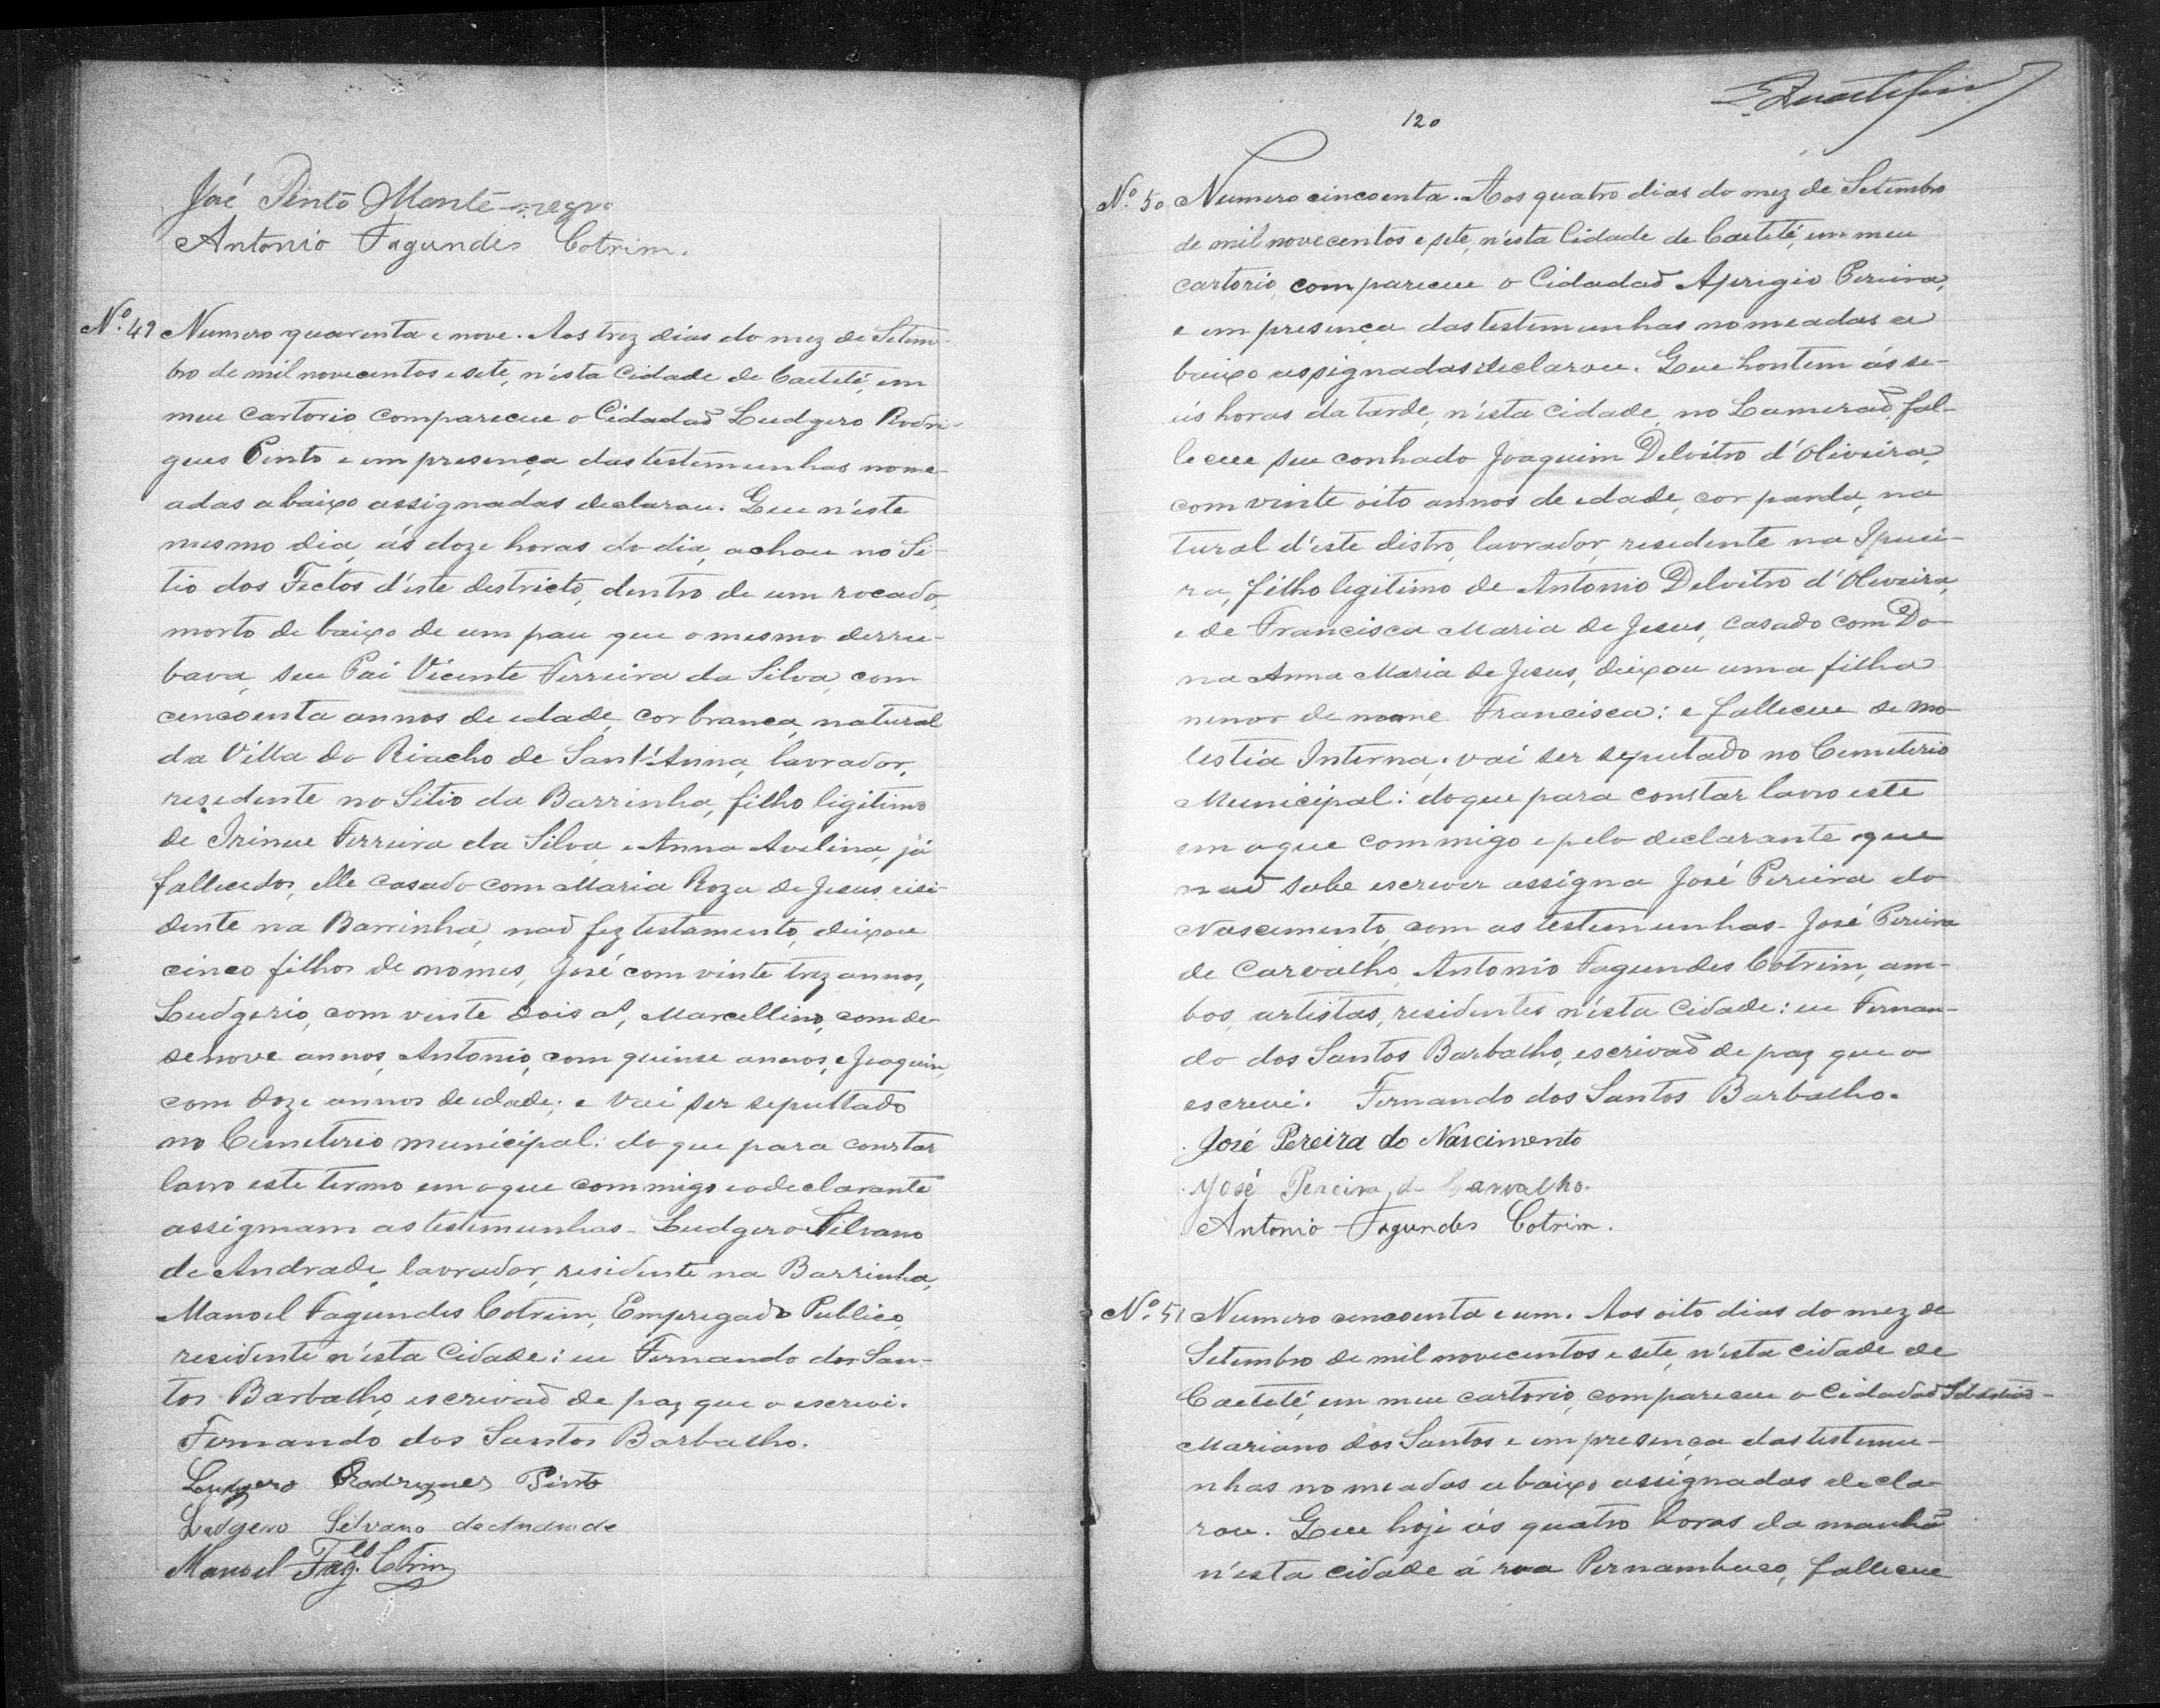 José Pinto Monte-negro
Antonio Fagundes Cotrim.
Nº. 49 Numero quarenta e nove. Aos trez dias do mez de Setem-
bro de mil novecentos e sete, n'esta Cidade de Caeteté, em
meu cartorio compareceu o Cidadaõ Ludgero Rodri-
gues Pinto e em presença das testemunhas nome-
adas abaixo assignadas declarou. Que n'este
mesmo dia, ás doze horas do dia, achou no Si-
tio dos Fectos d'este destricto, dentro de um rocado,
morto de baixo de um pau que o mesmo derru-
bava, seu Pai Vicente Ferreira da Silva, com
cencoenta annos de edade, cor branca, natural
da Villa do Riacho de Sant'Anna, lavrador,
resedente no Sitio da Barrinha, filho ligitimo
de Irineu Ferreira da Silva e Anna Avelina, já
fallecedos, elle casado com Maria Roza de Jesus, risi-
dente na Barrinha, naõ fez testamento, deixou
cinco filhos de nomes, José com vinte trez annos,
Ludgerio, com vinte dois aˢ, Marcellino, com de-
senove annos, Antonio, com quinze annos, e Joaquim,
com doze annos de edade; e vai ser sepultado
no Cemeterio municipal: do que para constar
lavro este termo em o que commigo e o declarante
assignam as testemunhas - Ludgero Silvano
de Andrade, lavrador, residente na Barrinha,
Manoel Fagundes Cotrim, Empregado Publico,
residente n'esta Cidade: eu Fernando dos San-
tos Barbalho, escrivaõ de paz que o escrevi.
Fernando dos Santos Barbalho.
Ludgero Rodrigues Pinto
Ludgero Silvano de Andrade
Manoel Fag.es Cotrim
120
Nº. 50 Numero cincoenta. Aos quatro dias do mez de Setembro
de mil novecentos e sete, n'esta Cidade de Caeteté, em meu
cartorio, compareceu o Cidadaõ Aprigio Pereira,
e em presença das testemunhas nomeadas a
baixo assignadas declarou. Que hontem ás se-
is horas da tarde, n'esta cidade, no Lameraõ, fal-
leceu seu conhado Joaquim Deloitro d'Oliveira,
com vinte oito annos de edade, cor parda, na
tural d'este distro, lavrador, resedente na Ipuei-
ra, filho legitimo de Antonio Deloitro d'Oliveira,
e de Francisca Maria de Jesus, casado com Do-
na Anna Maria de Jesus, deixou uma filha
menor de nome Francisca: e falleceu de mo-
lestia Interna; vai ser sepultado no Cemeterio
Municipal: do que para constar lavro este
em o que commigo e pelo declarante que
naõ sabe escrever assigna José Pereira do
Nascimento, com as testemunhas - José Pereira
de Carvalho, Antonio Fagundes Cotrim, am-
bos, artistas, residentes n'esta Cidade: eu Fernan-
do dos Santos Barbalho, escrivaõ de paz que o
escrevi. Fernando dos Santos Barbalho.
José Pereira do Nascimento
José Pereira de Carvalho.
Antonio Fagundes Cotrim.
Nº. 51 Numero cencoenta e um. Aos oito dias do mez de
Setembro de mil novecentos e sete, n'esta cidade de
Caeteté, em meu cartorio, compareceu o Cidadaõ
Mariano dos Santos e em presença das testemu-
nhas nomeadas abaixo assignadas decla-
rou. Que hoje ás quatro horas da manhã
n'esta cidade á rua Pernambuco, falleceu